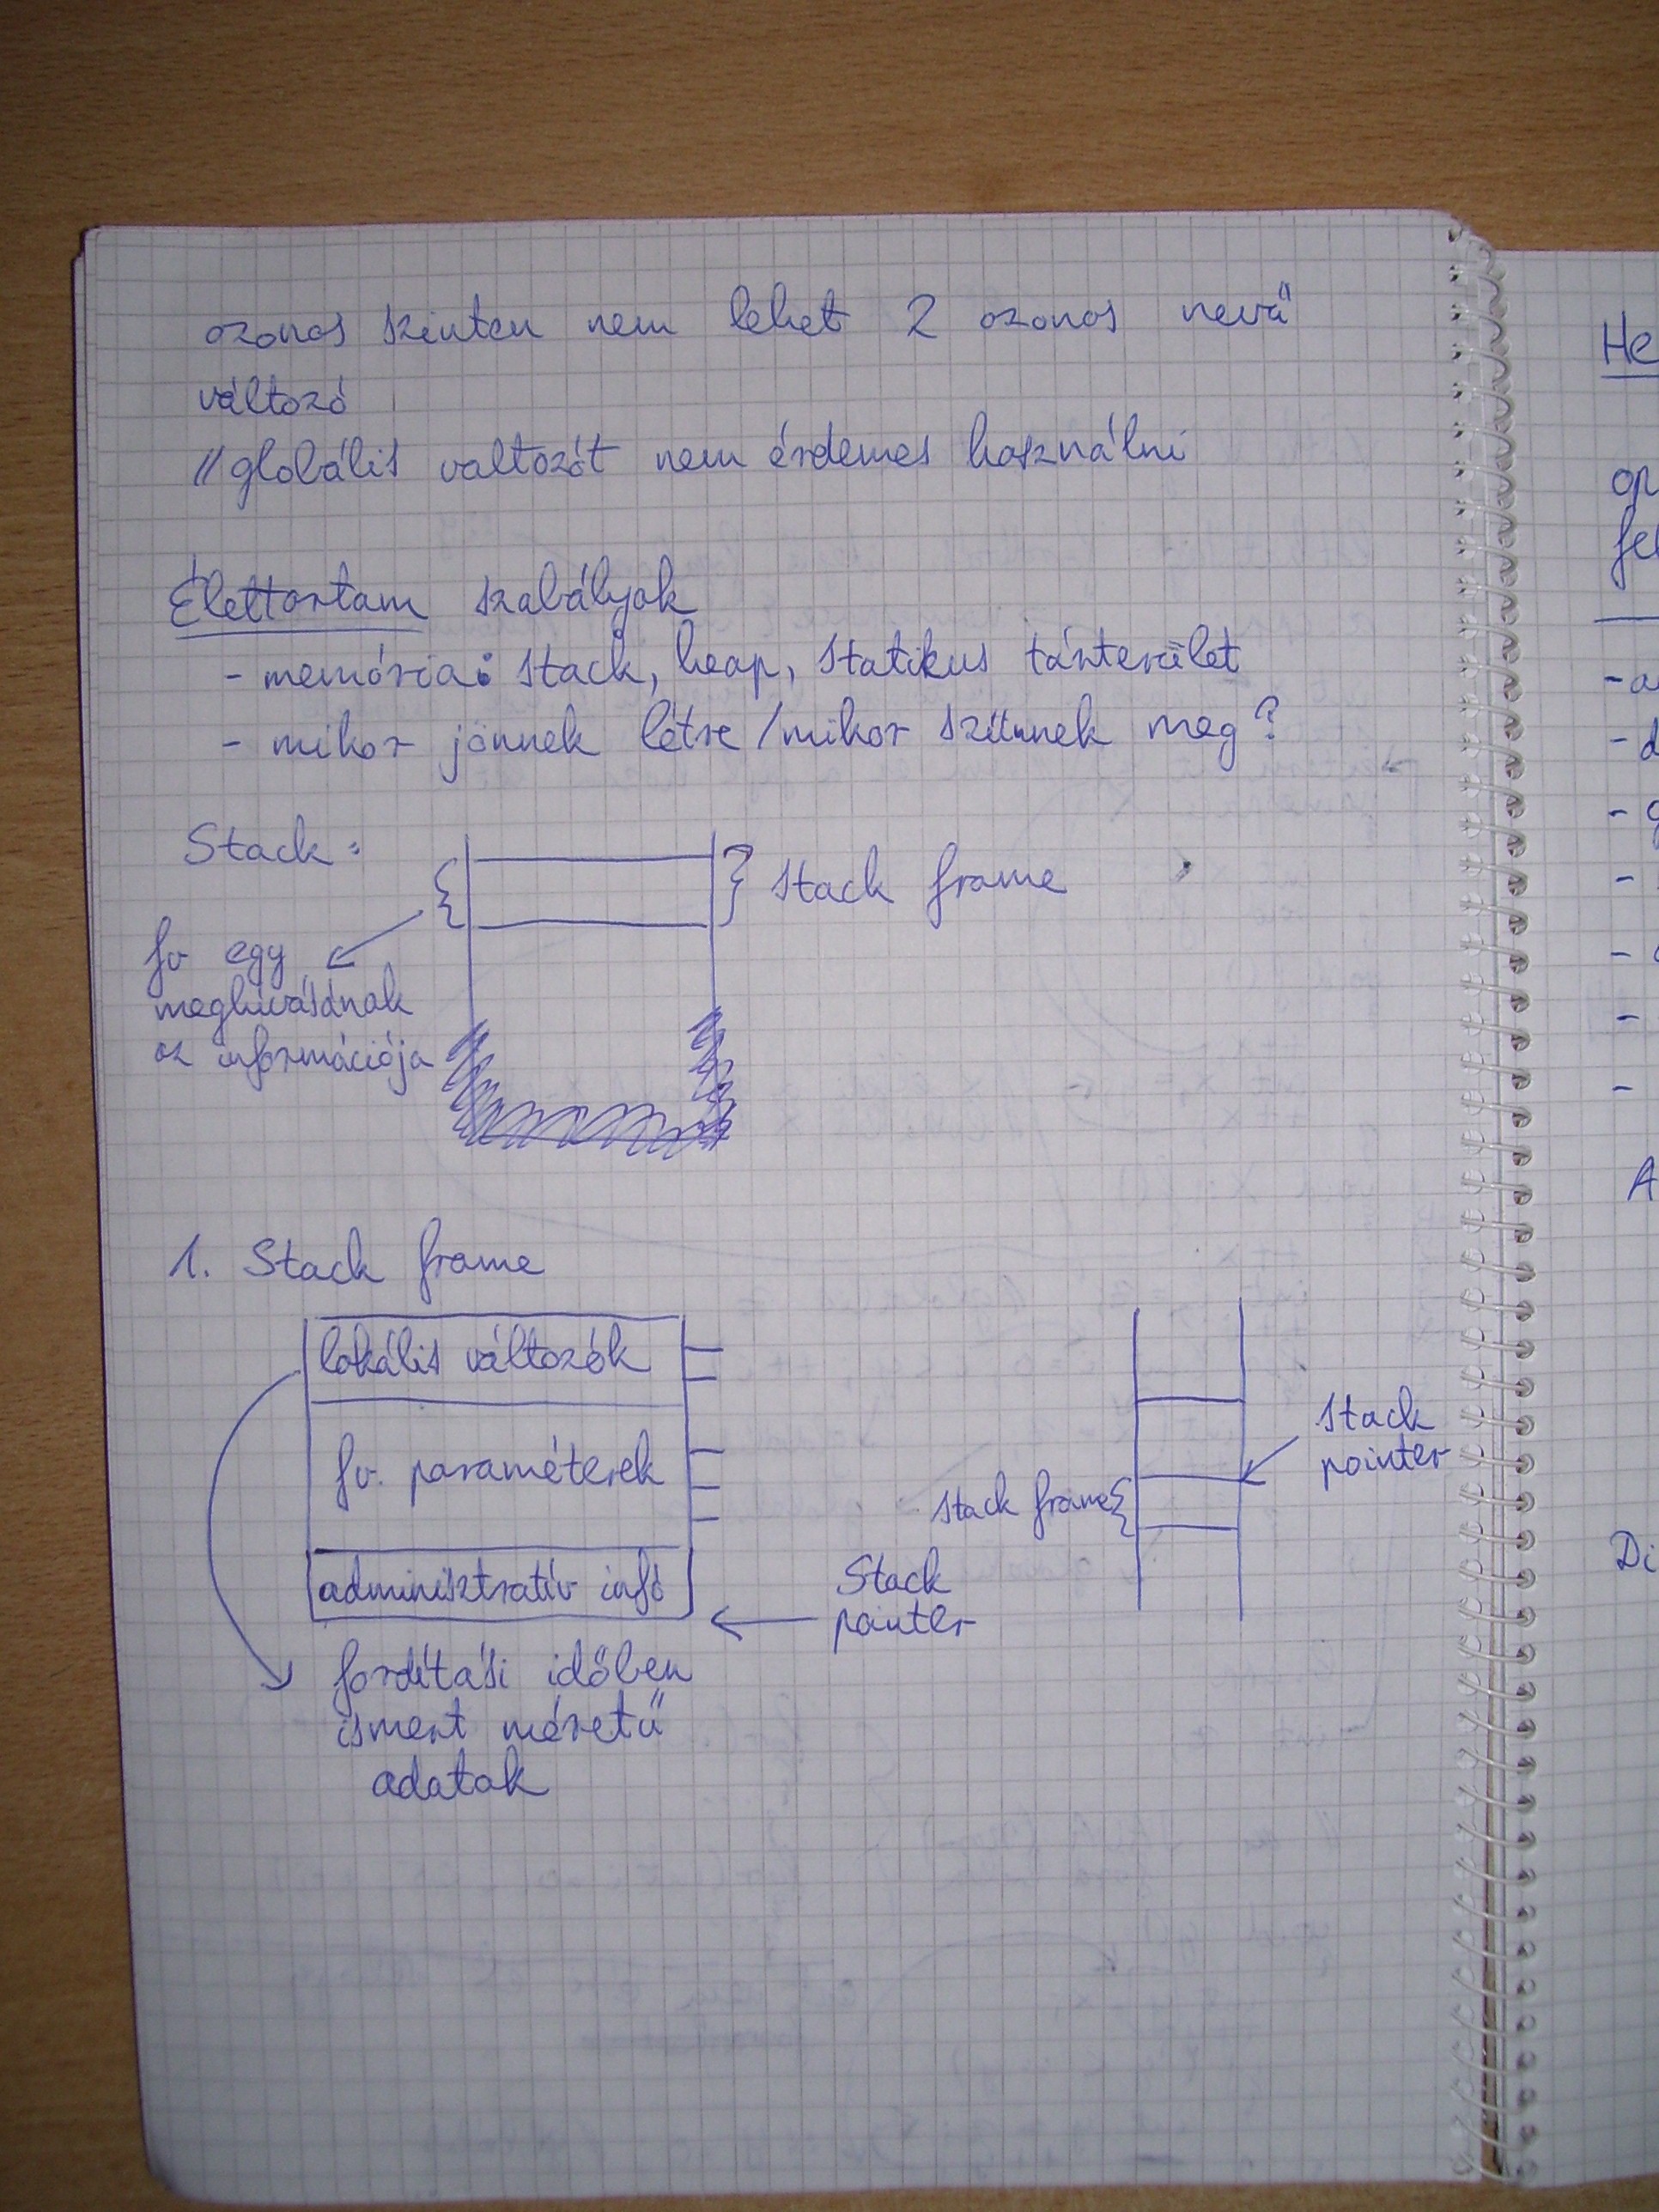 azonos szinten nem lehet 2 azonos nevű
változó
// globális valtozót nem érdemes használni
Élettartam szabályok
- memória: stack, heap, statikus tárterület
- mikor jönnek létre / mikor szűnnek meg?
Stack:
stack frame
fv egy
meghívásának
az információja
1. Stack frame
lokális változók
fv. paraméterek
adminisztratív infó
Stack
pointer
fordítási időben
ismert méretű
adatok
stack
pointer
stack frame
He
op
fel
- a
- d
- g
-
-
-
-
A
Di